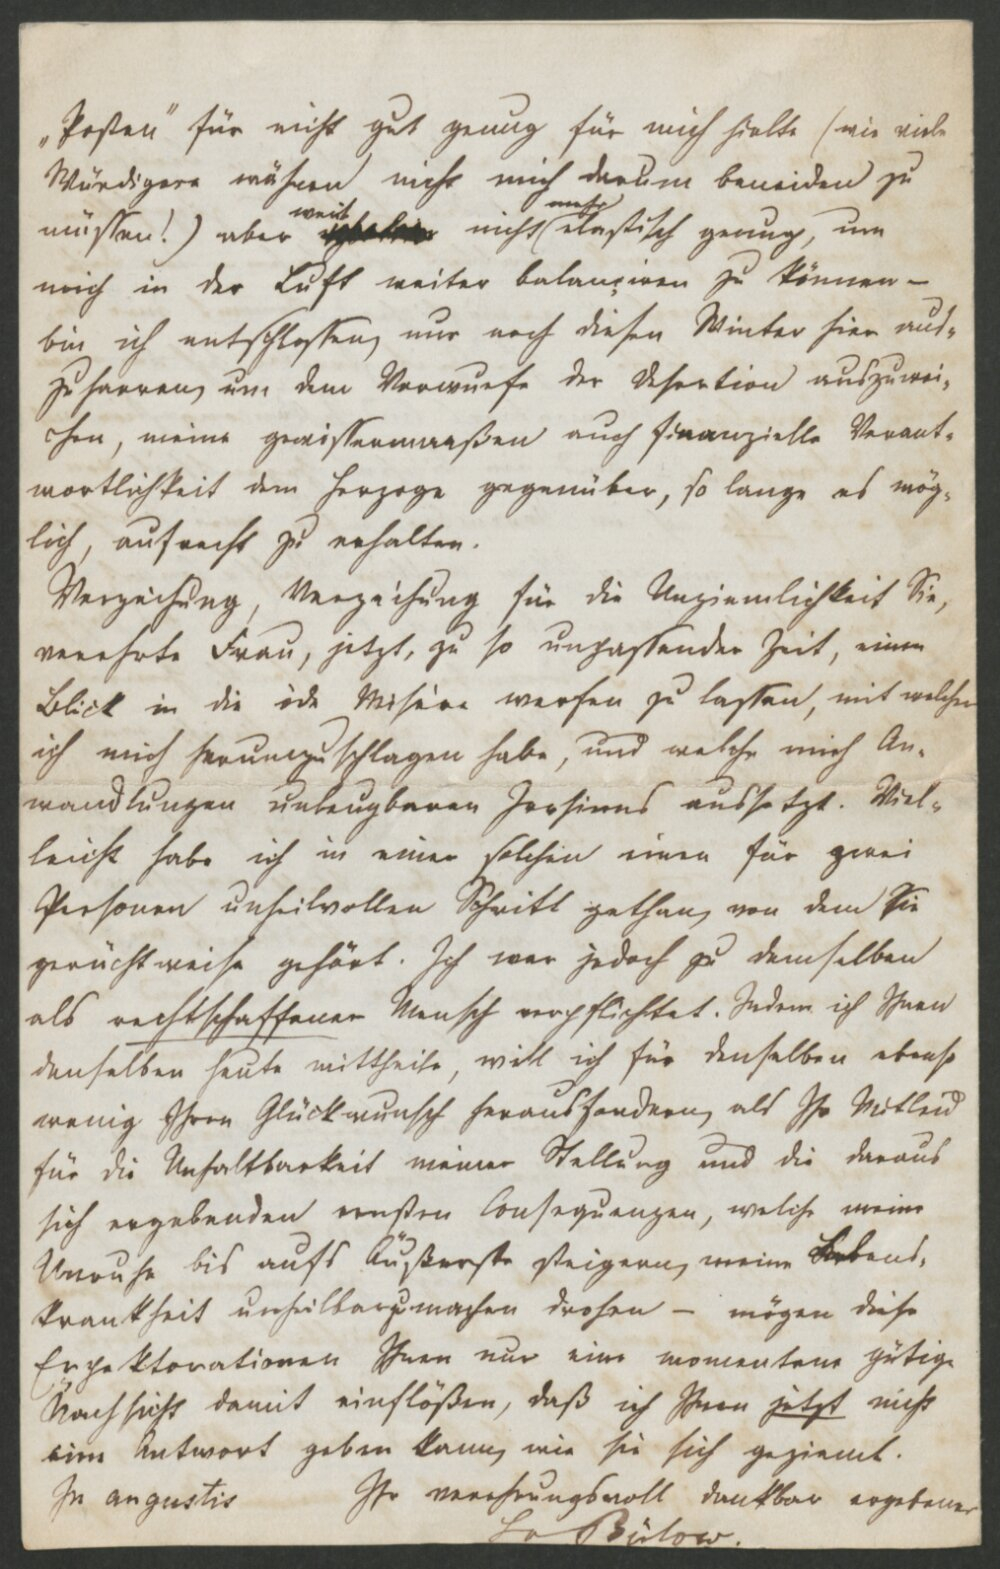 „Posten" für nicht gut genug für mich hielte (wie viele
Würdigere wähnen nicht mich darum beneiden zu
müssen!) aber weit nicht mehr elastisch genug, um
mich in der Luft weiter balanciren zu können –
bin ich entschlossen, nur noch diesen Winter hier aus-
zuharren, um dem Vorwurfe der Desertion auszuwei-
chen, meine gewissermaaßen auch finanzielle Verant-
wortlichkeit dem Herzoge gegenüber, so lange es mög-
lich, aufrecht zu erhalten.
Verzeihung, Verzeihung für die Unziemlichkeit Sie,
verehrte Frau, jetzt, zu so unpassender Zeit, einen
Blick in die öde Misère werfen zu lassen, mit welcher
ich mich herumzuschlagen habe, und welche mich An-
wandlungen unleugbaren Irrsinns aussetzt. Viel-
leicht habe ich in einer solchen einen für zwei
Personen unheilvollen Schritt gethan, von dem Sie
gerüchtweise gehört. Ich war jedoch zu demselben
als rechtschaffener Mensch verpflichtet. Indem ich Ihnen
denselben heute mittheile, will ich für denselben ebenso
wenig Ihren Glückwunsch herausfordern, als Ihr Mitleid
für die Unhaltbarkeit meiner Stellung und die daraus
sich ergebenden ernsten Consequenzen, welche meine
Unruhe bis aufs Äußerste steigern, meine Lebens-
krankheit unheilbar zu machen drohen – mögen diese
Expektorationen Ihnen nur eine momentane gütige
Nachsicht damit einflößen, daß ich Ihnen jetzt nicht
eine Antwort geben kann, wie sie sich geziemt.
In angustis Ihr verehrungsvoll dankbar ergebener
Bülow.